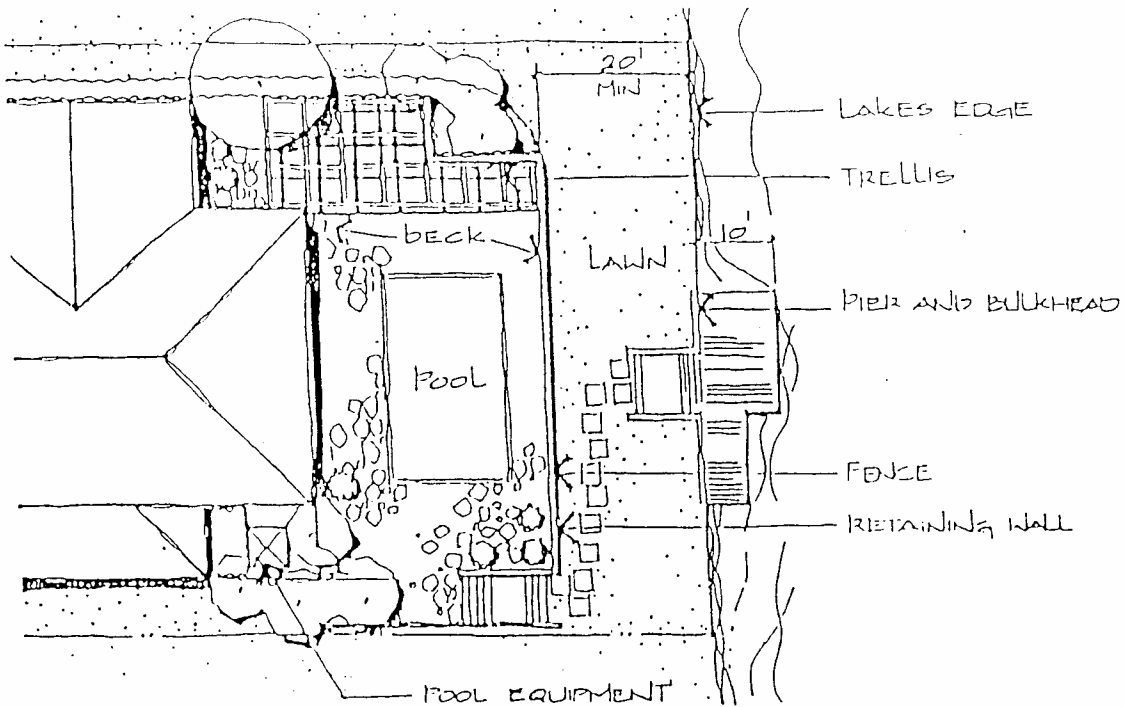 20'
MIN
LAKES EDGE
TRELLIS
DECK
10'
LAWN
PIER AND BULKHEAD
POOL
FENCE
RETAINING WALL
POOL EQUIPMENT